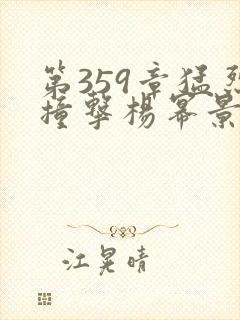 第359章猛烈
撞擊楊冪景
江晃晴